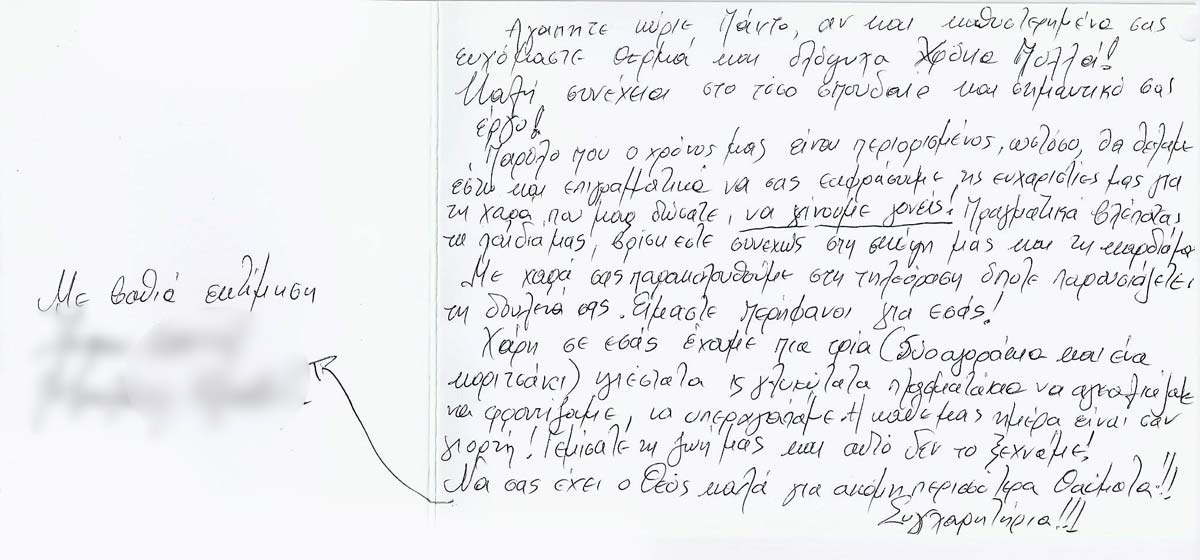 Αγαπητέ κύριε Πάντο, αν και καθυστερημένα σας
ευχόμαστε θερμά και ολόψυχα Χρόνια Πολλά!
Καλή συνέχεια στο τόσο σπουδαίο και σημαντικό σας
έργο!
Παρόλο που ο χρόνος μας είναι περιορισμένος, ωστόσο, θα θέλαμε
έστω και επιγραμματικά να σας εκφράσουμε τις ευχαριστίες μας για
τη χαρά που μας δώσατε, να γίνουμε γονείς! Πραγματικά βλέποντας
τα παιδιά μας, βρίσκεστε συνεχώς στη σκέψη μας και τη καρδιά μας
Με χαρά σας παρακολουθούμε στη τηλεόραση όποτε παρουσιάζετε
τη δουλειά σας. Είμαστε περήφανοι για εσάς!
Χάρη σε εσάς έχουμε πια τρία (δύο αγοράκια και ένα
κοριτσάκι) υγιέστατα & γλυκύτατα πλασματάκια να αγκαλιάζουμε
να φροντίζουμε, να υπεραγαπάμε. Η κάθε μας ημέρα είναι σαν
γιορτή! Γεμίσατε τη ζωή μας και αυτό δεν το ξεχνάμε!
Να σας έχει ο Θεός καλά για ακόμη περισσότερα θαύματα!!!
Συγχαρητήρια!!!
Με βαθιά εκτίμηση